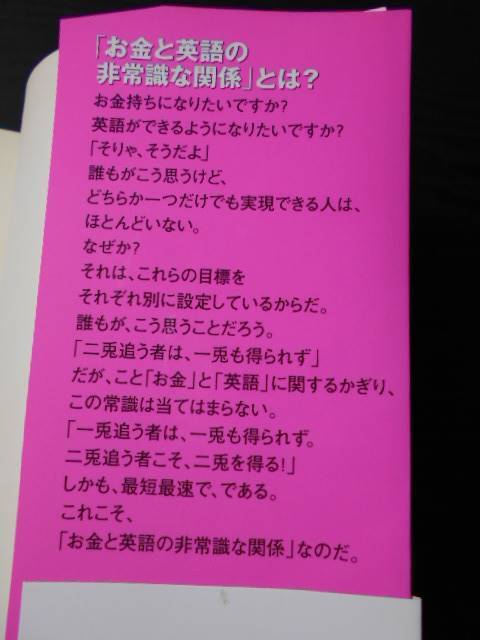 「お金と英語の
非常識な関係」とは？
お金持ちになりたいですか？
英語ができるようになりたいですか？
「そりゃ、そうだよ」
誰もがこう思うけど、
どちらか一つだけでも実現できる人は、
ほとんどいない。
なぜか？
それは、これらの目標を
それぞれ別に設定しているからだ。
誰もが、こう思うことだろう。
「二兎追う者は、一兎も得られず」
だが、こと「お金」と「英語」に関するかぎり、
この常識は当てはまらない。
「一兎追う者は、一兎も得られず。
二兎追う者こそ、二兎を得る！」
しかも、最短最速で、である。
これこそ、
「お金と英語の非常識な関係」なのだ。